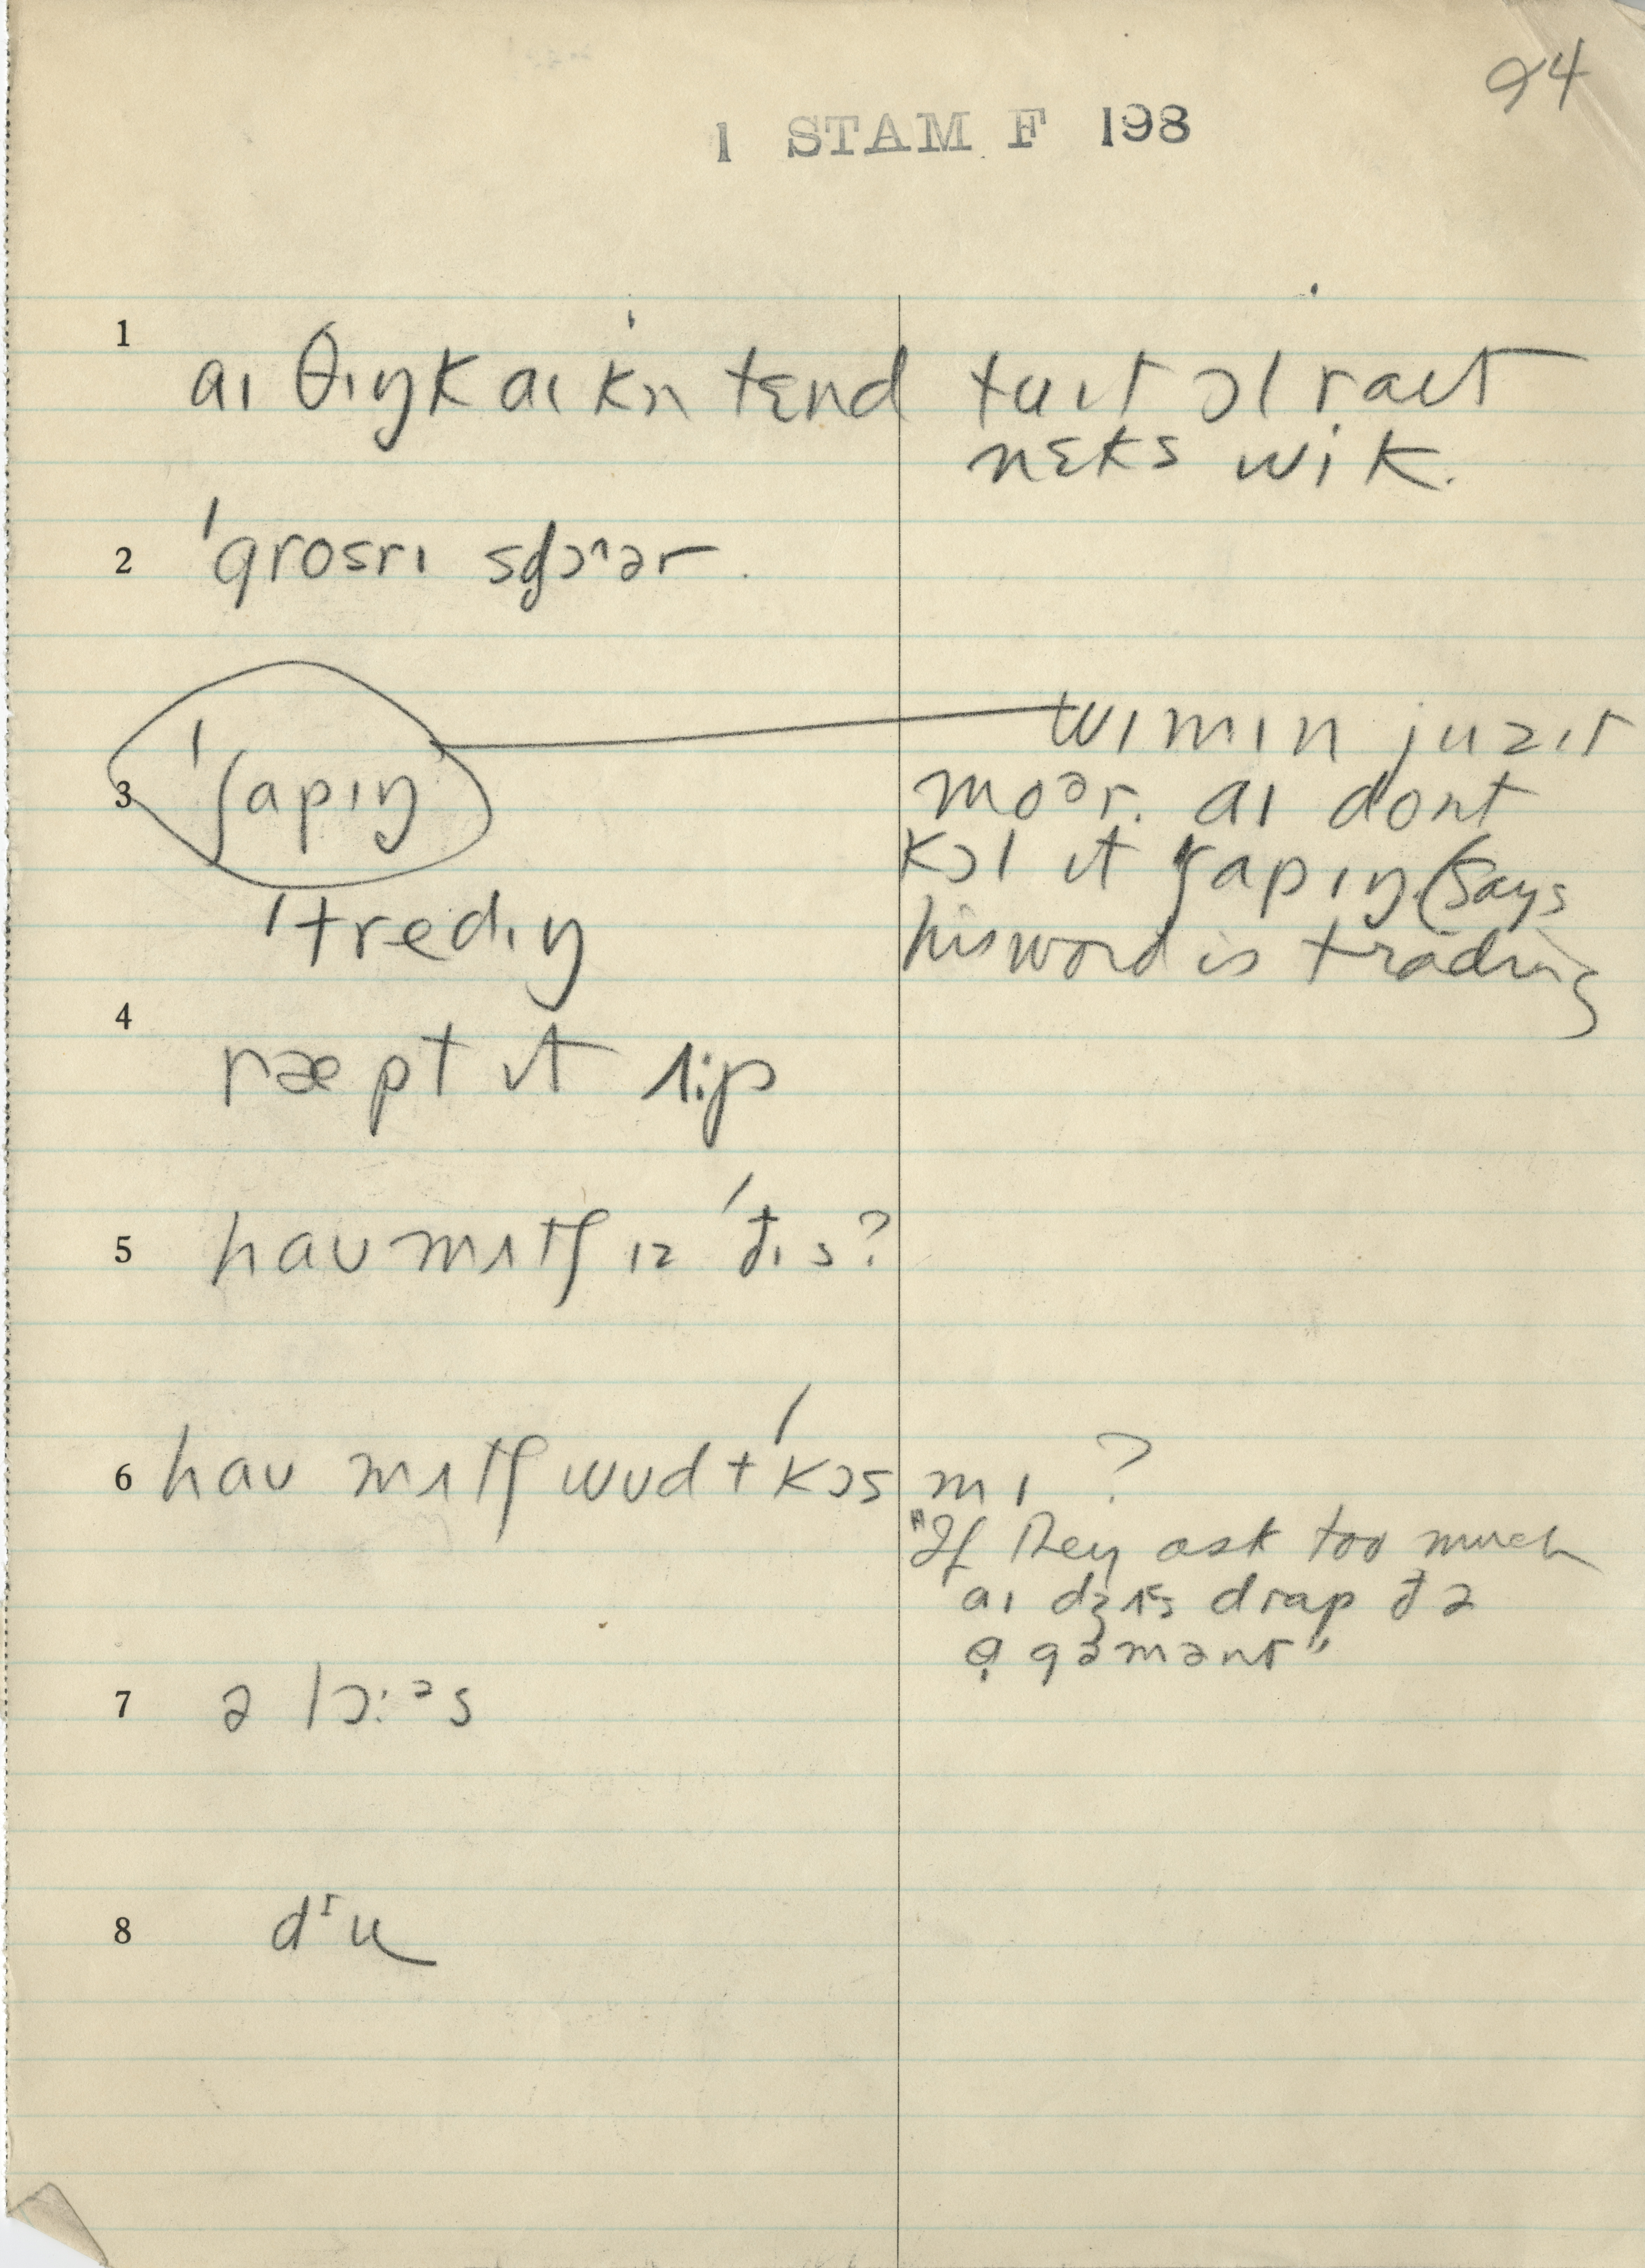 94
1 STAM F 198
1 aɪ θɪŋk aɪ kn tɛnd tuɪt ɔl raɪt
nɛks wik.
2 ˈgrosrɪ
3 ˈʃapɪŋ wɪmɪn juzɪt
moᵊr. aɪ dont
kɔl ɪt ʃapɪŋ (says
his word is trading)
ˈtredɪŋ
4 ræpt ɪt ʌp
5 haʊ mʌtʃ ɪz ˈđɪs?
6 haʊ mʌtʃ wʊd t ˈkɔs mɪ ?
"If they ask too much
aɪ dʒʌs drap đə
ɑgəmənt"
7 ə lɔ:ᵊs
8 dᶦu